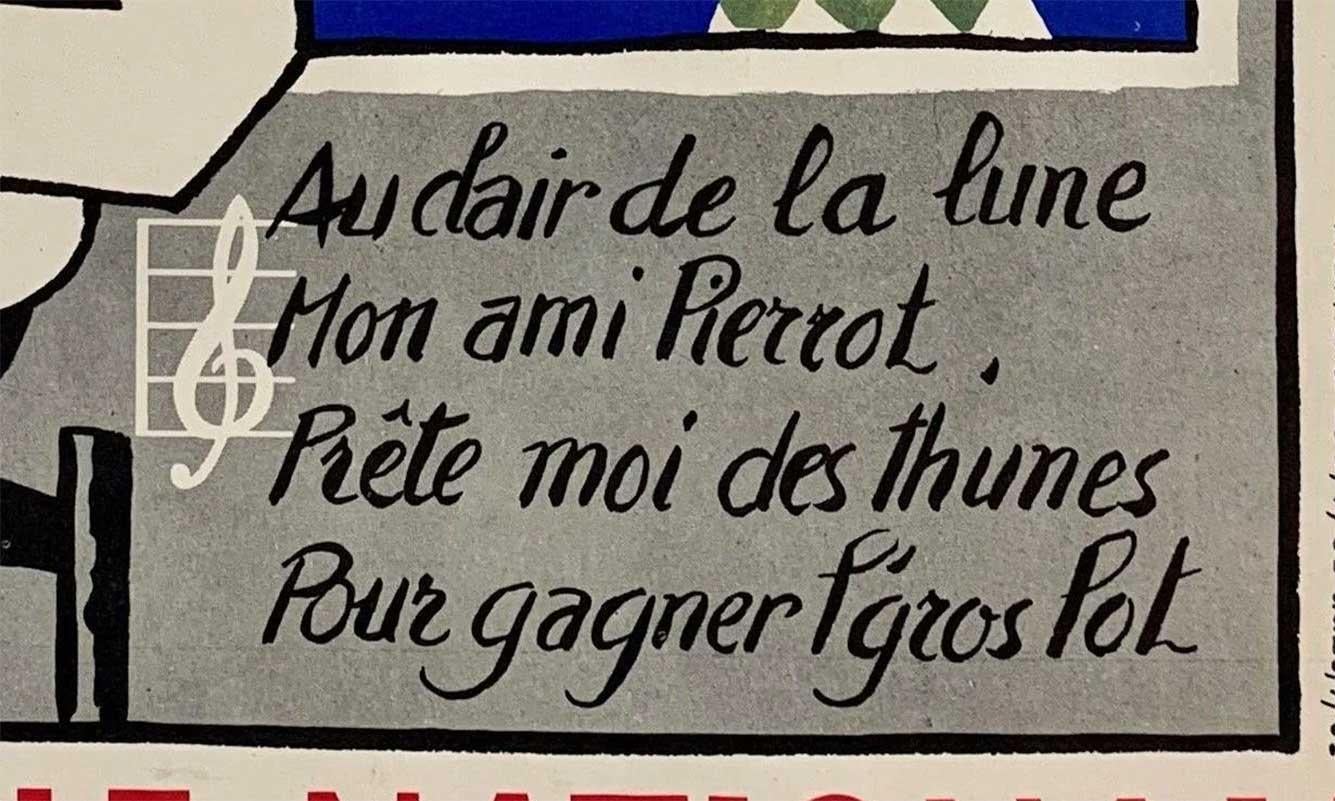 Au clair de la lune
Mon ami Pierrot,
Prête moi des thunes
Pour gagner l'gros Pot